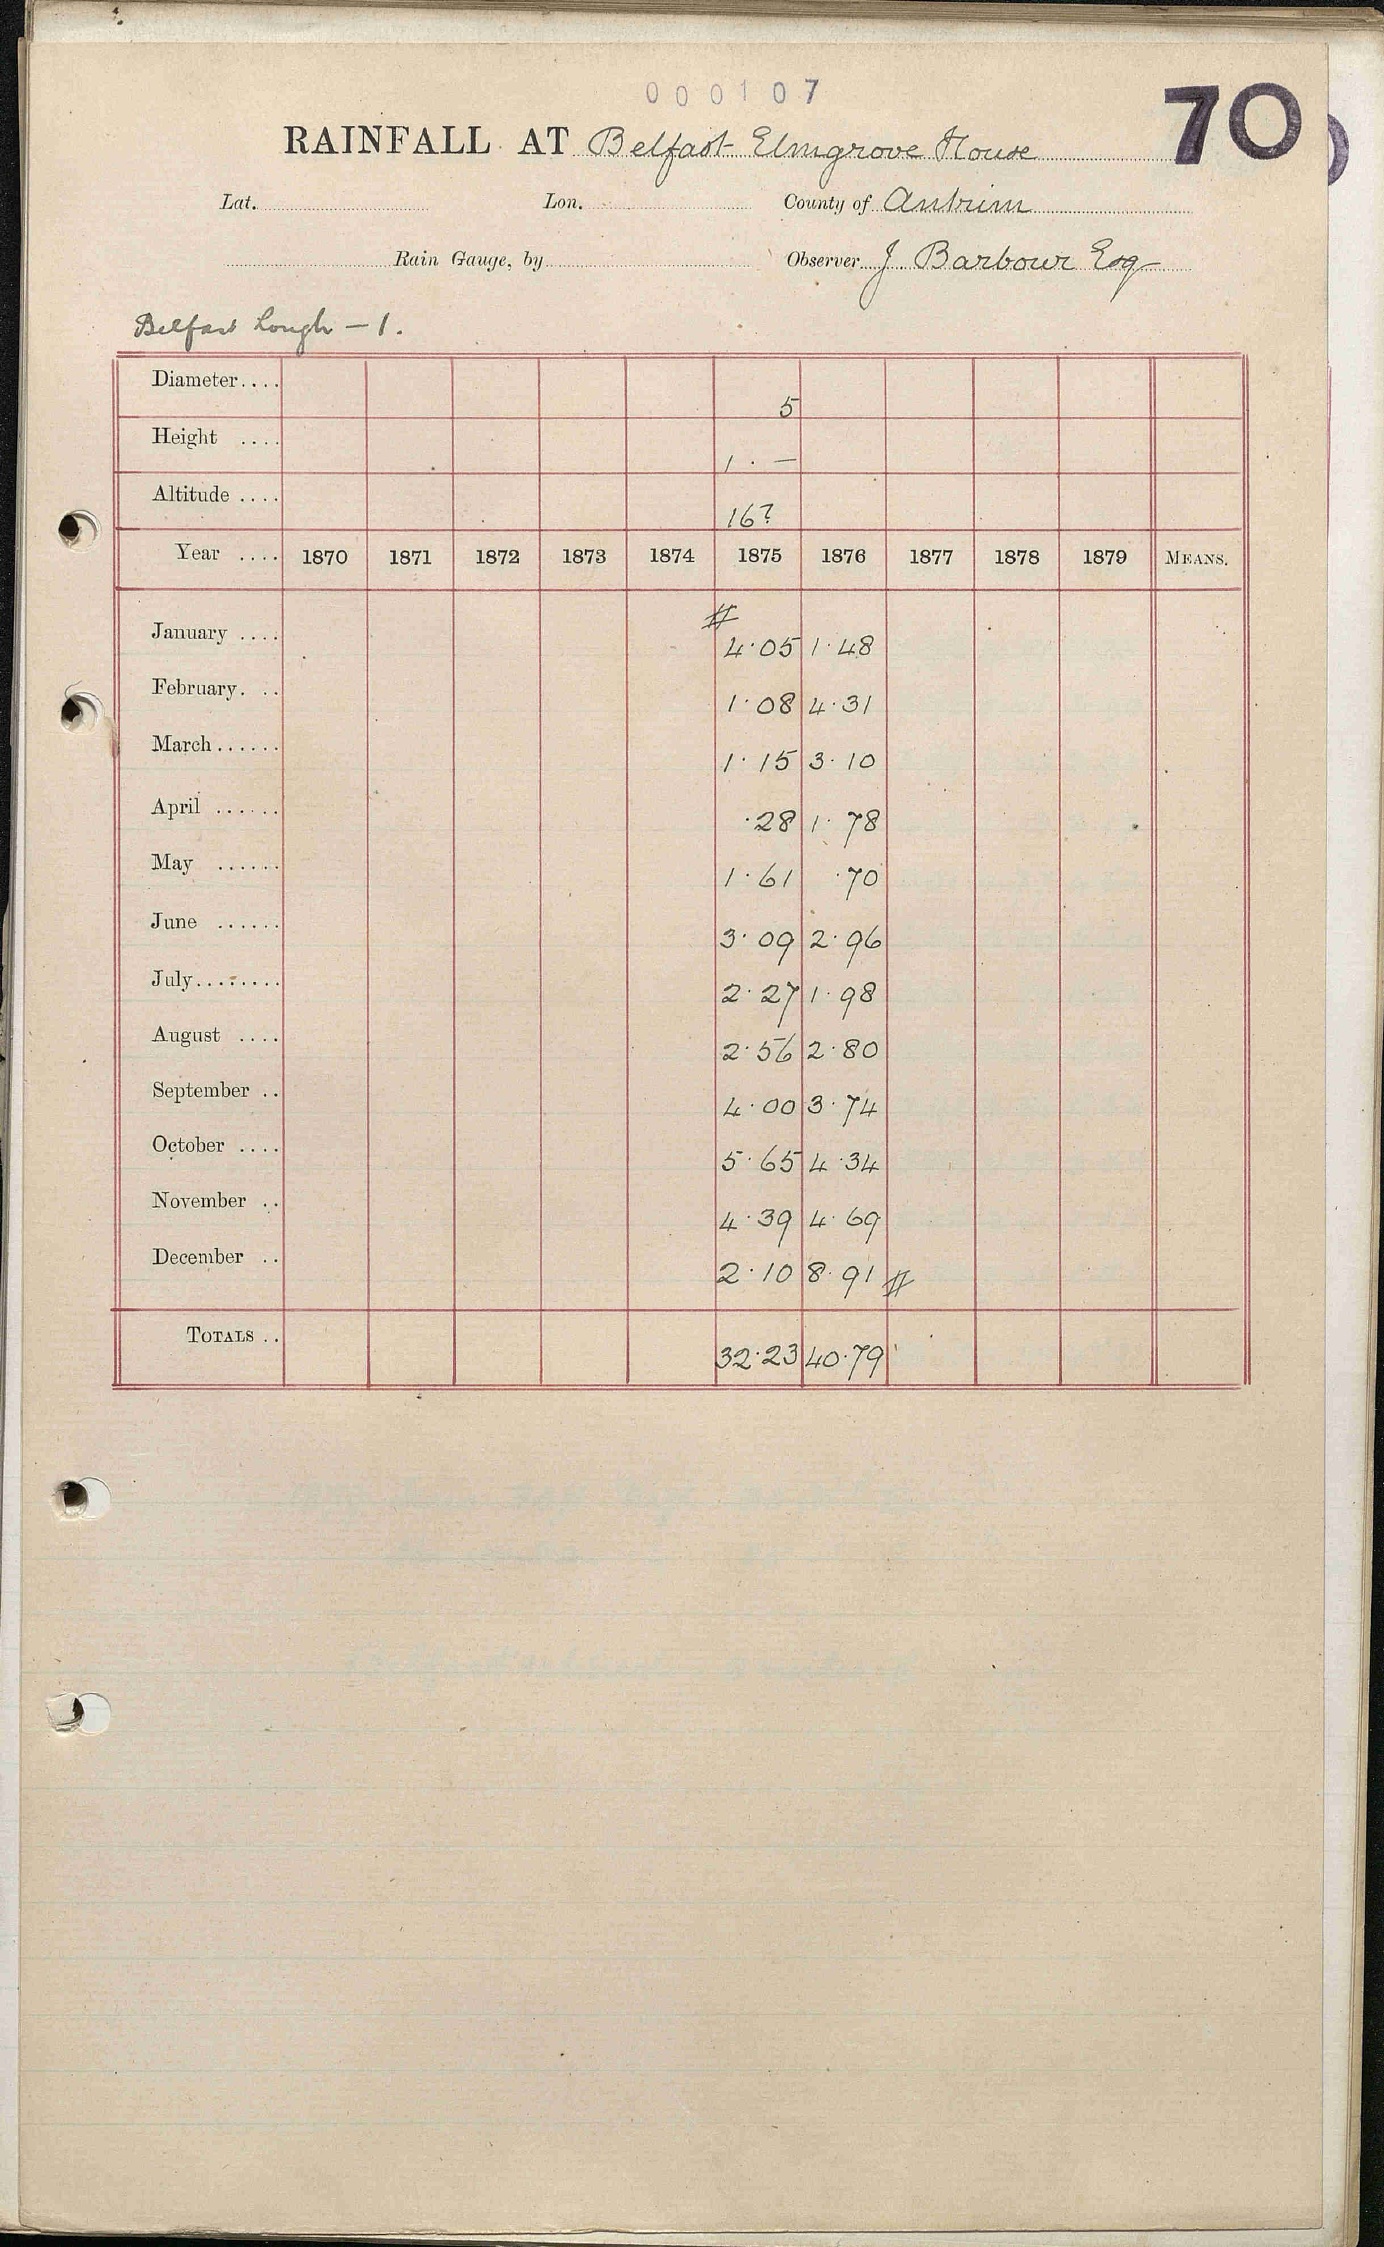 000107
70
RAINFALL AT Belfast Elmgrove House
Lat. Lon. County of Antrim
Rain Gauge, by Observer J. Barbour Esq
Belfast Lough – 1.
Diameter.... 5
Height .... 1 · —
Altitude .... 16?
Year .... 1870 1871 1872 1873 1874 1875 1876 1877 1878 1879 MEANS.
#
January .... 4·05 1·48
February. .. 1·08 4·31
March...... 1·15 3·10
April ...... ·28 1·78
May ...... 1·61 ·70
June ...... 3·09 2·96
July........ 2·27 1·98
August .... 2·56 2·80
September .. 4·00 3·74
October .... 5·65 4·34
November .. 4·39 4·69
December .. 2·10 8·91 #
TOTALS .. 32·23 40·79